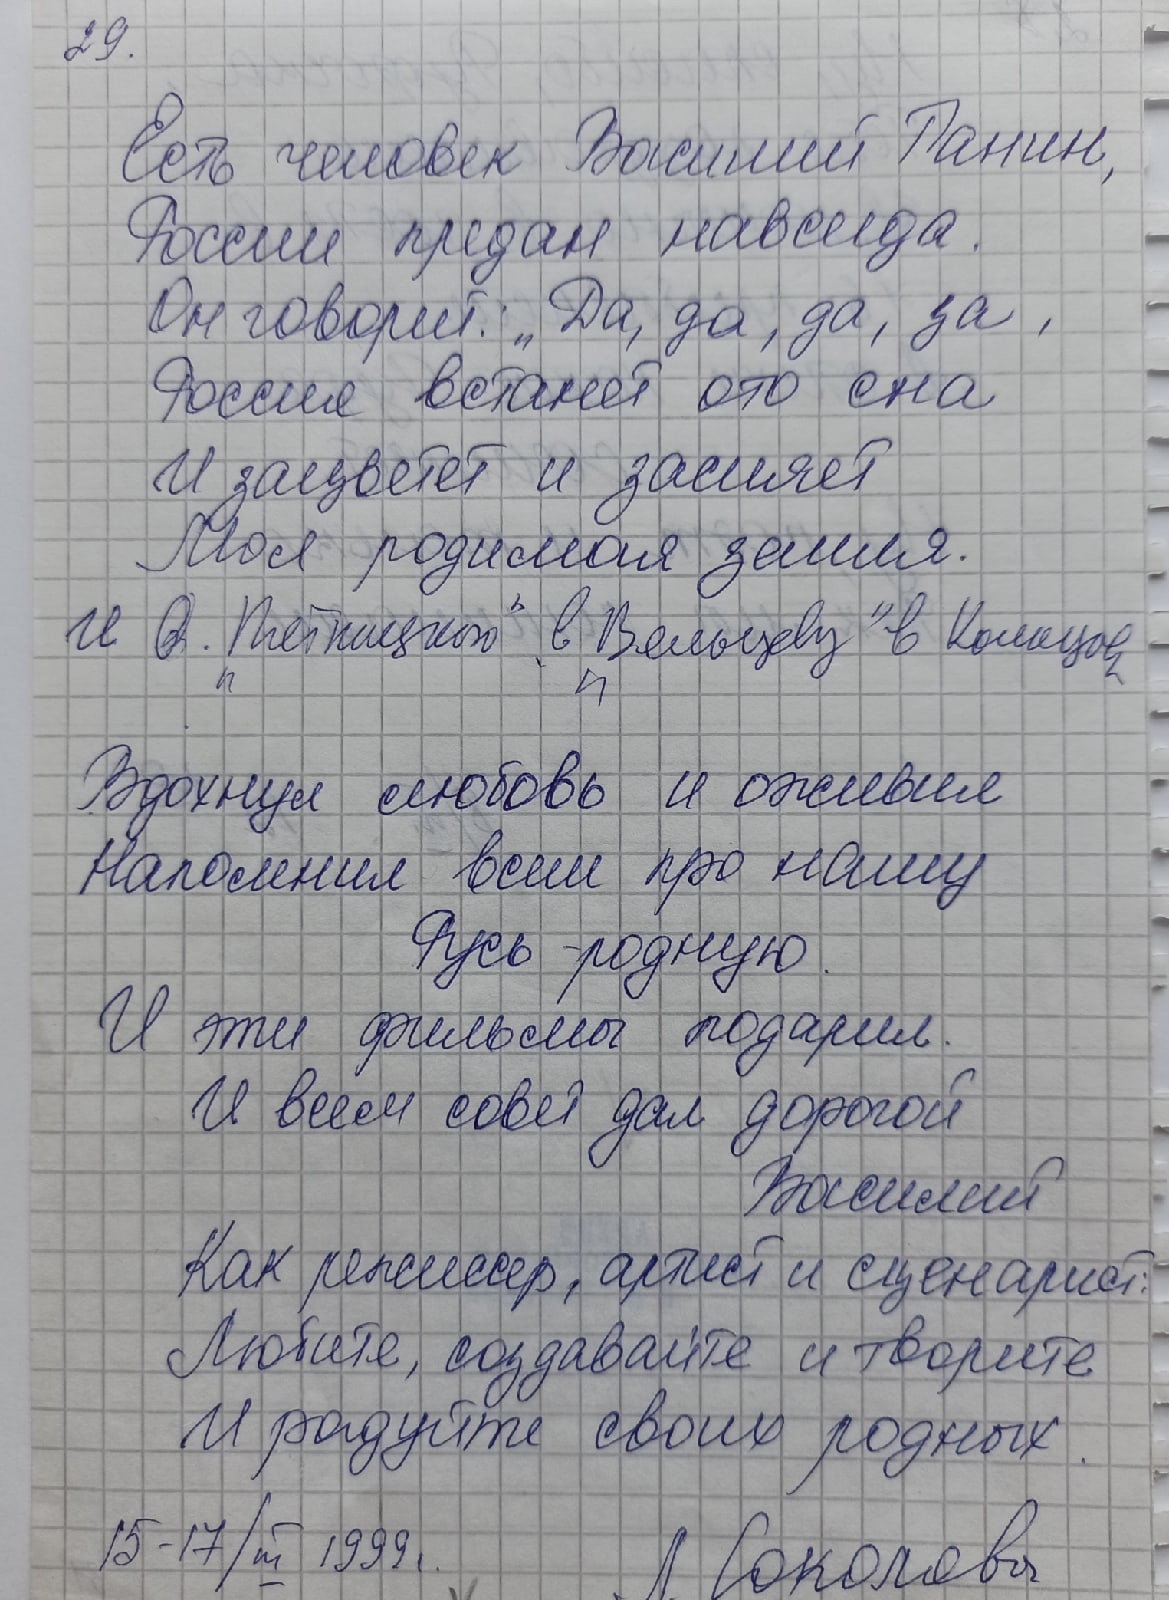 29.
Есть человек Василий Панин,
России предан навсегда.
Он говорит: „Да, да, да, за,
Россия встанет ото сна
И зацветет и засияет
Моя родимая земля.
И О. „Пятницкого" в „Вяльцеву" в Кольцова
Вдохнул любовь и оживил
Напомнил всем про нашу
Русь-родную.
И эти фильмы подарил.
И всем совет дал дорогой
Василий
Как режиссер, артист и сценарист:
Любите, создавайте и творите
И радуйте своих родных.
15-17/III 1999г. Л. Соколова